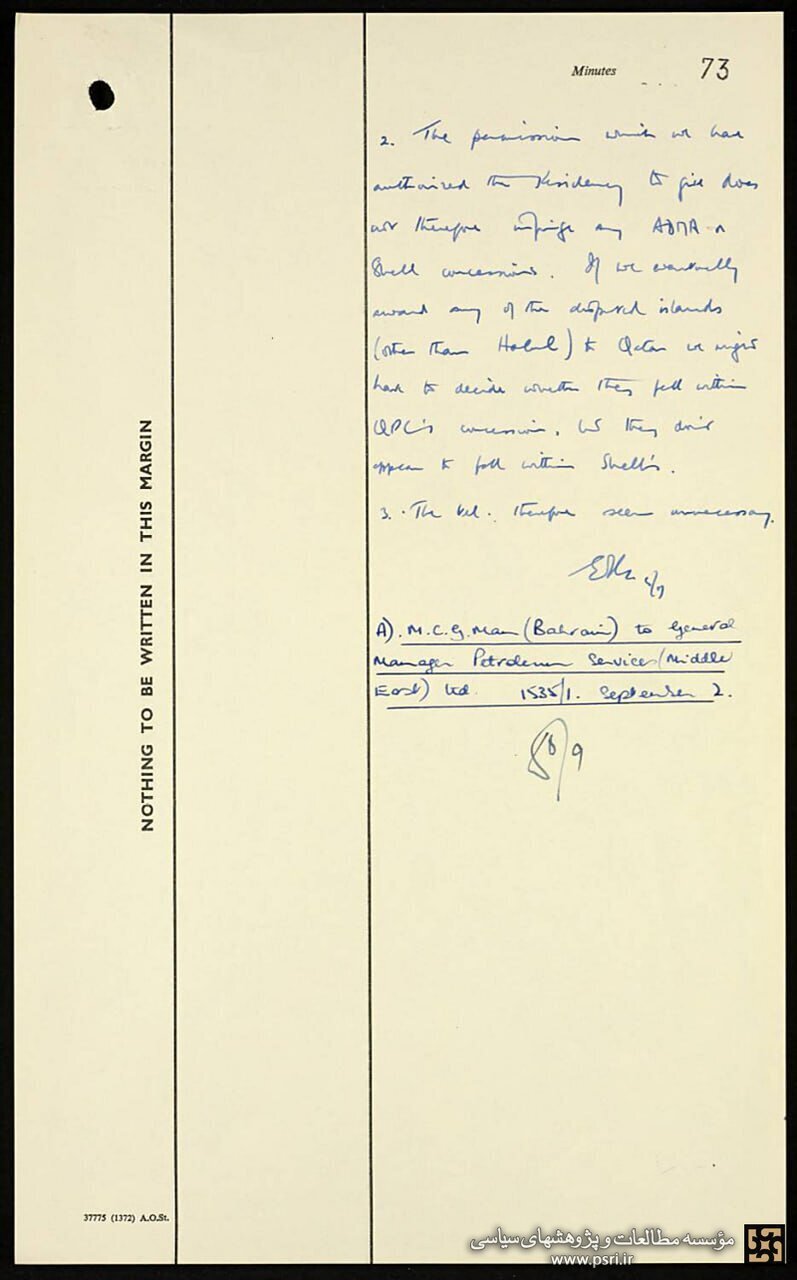 Minutes
73
2. The permission which we have
authorised the Residency to give does
not therefore infringe any ADMA or
Shell concessions. If we eventually
award any of the disputed islands
(other than Halul) to Qatar we might
have to decide whether they fell within
QPC's concession, but they don't
appear to fall within Shell's.
3. The tel. therefore seems unnecessary.
A). M.C.G. Man (Bahrain) to General
Manager Petroleum Services (Middle
East) Ltd. 1535/1. September 2.
8/9
NOTHING TO BE WRITTEN IN THIS MARGIN
37775 (1372) A.O.St.
مؤسسه مطالعات و پژوهشهای سیاسی
www.psri.ir